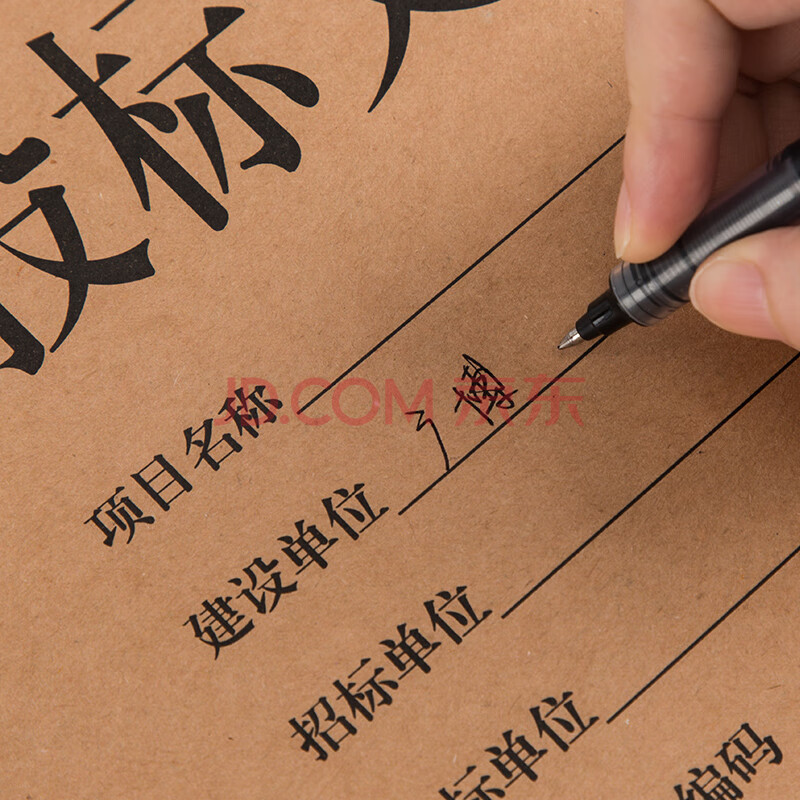 投标文
项目名称
建设单位
广博
招标单位
标单位
编码
JD.COM 京东